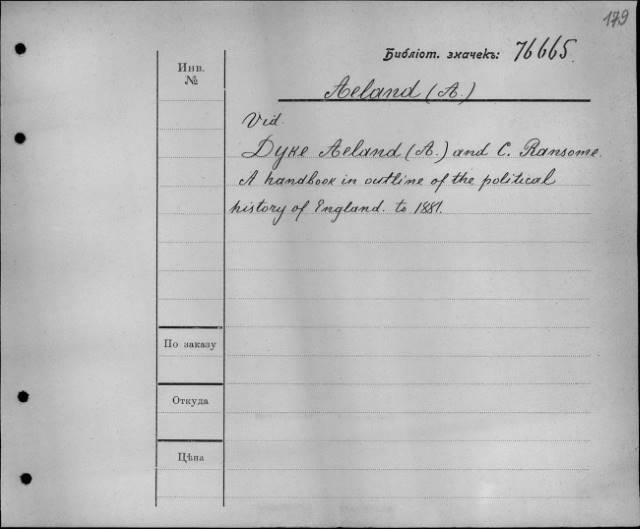 179
Библіот. значекъ: 76665.
Инв.
№
Aeland (A.)
Vid.
Dyke Aeland (A.) and C. Ransome.
A handbook in outline of the political
history of England. to 1881.
По заказу
Откуда
Цѣна